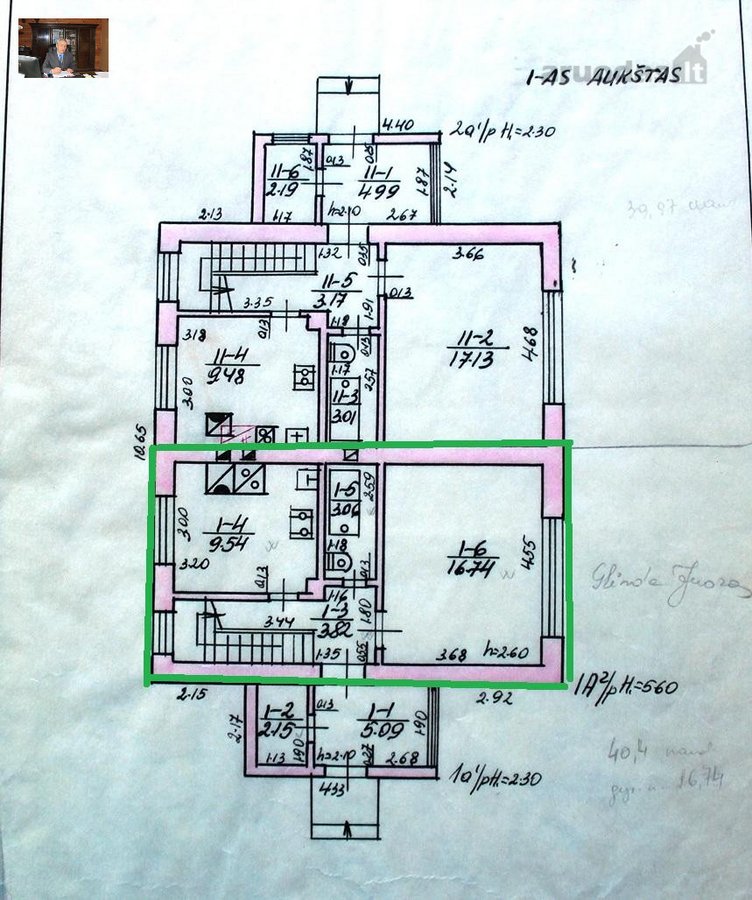 aruodas.lt
1-AS AUKŠTAS
4.40
2a¹/p H=2.30
11-6
2.19
1.87
0.13
0.25
11-1
4.99
1.87
2.14
2.13
1.17
h=2.10
2.67
1.32
0.35
3.66
11-5
3.17
3.35
0.13
1.91
0.13
1.18
0.13
3.18
11-4
9.48
3.00
1.17
2.57
11-3
3.01
11-2
17.13
4.68
10.65
3.00
1-4
9.54
3.20
0.13
1-5
3.06
2.59
1.18
0.13
1-6
16.74
4.55
1.16
1-3
3.82
3.44
1.80
1.35
0.55
3.68
h=2.60
Glinda Juozas
2.15
2.92
1A²/p H=5.60
2.17
1-2
2.15
0.13
1-1
5.09
1.90
1.90
1.13
h=2.10
0.27
2.68
4.33
1a¹/p H=2.30
40,4
16,74